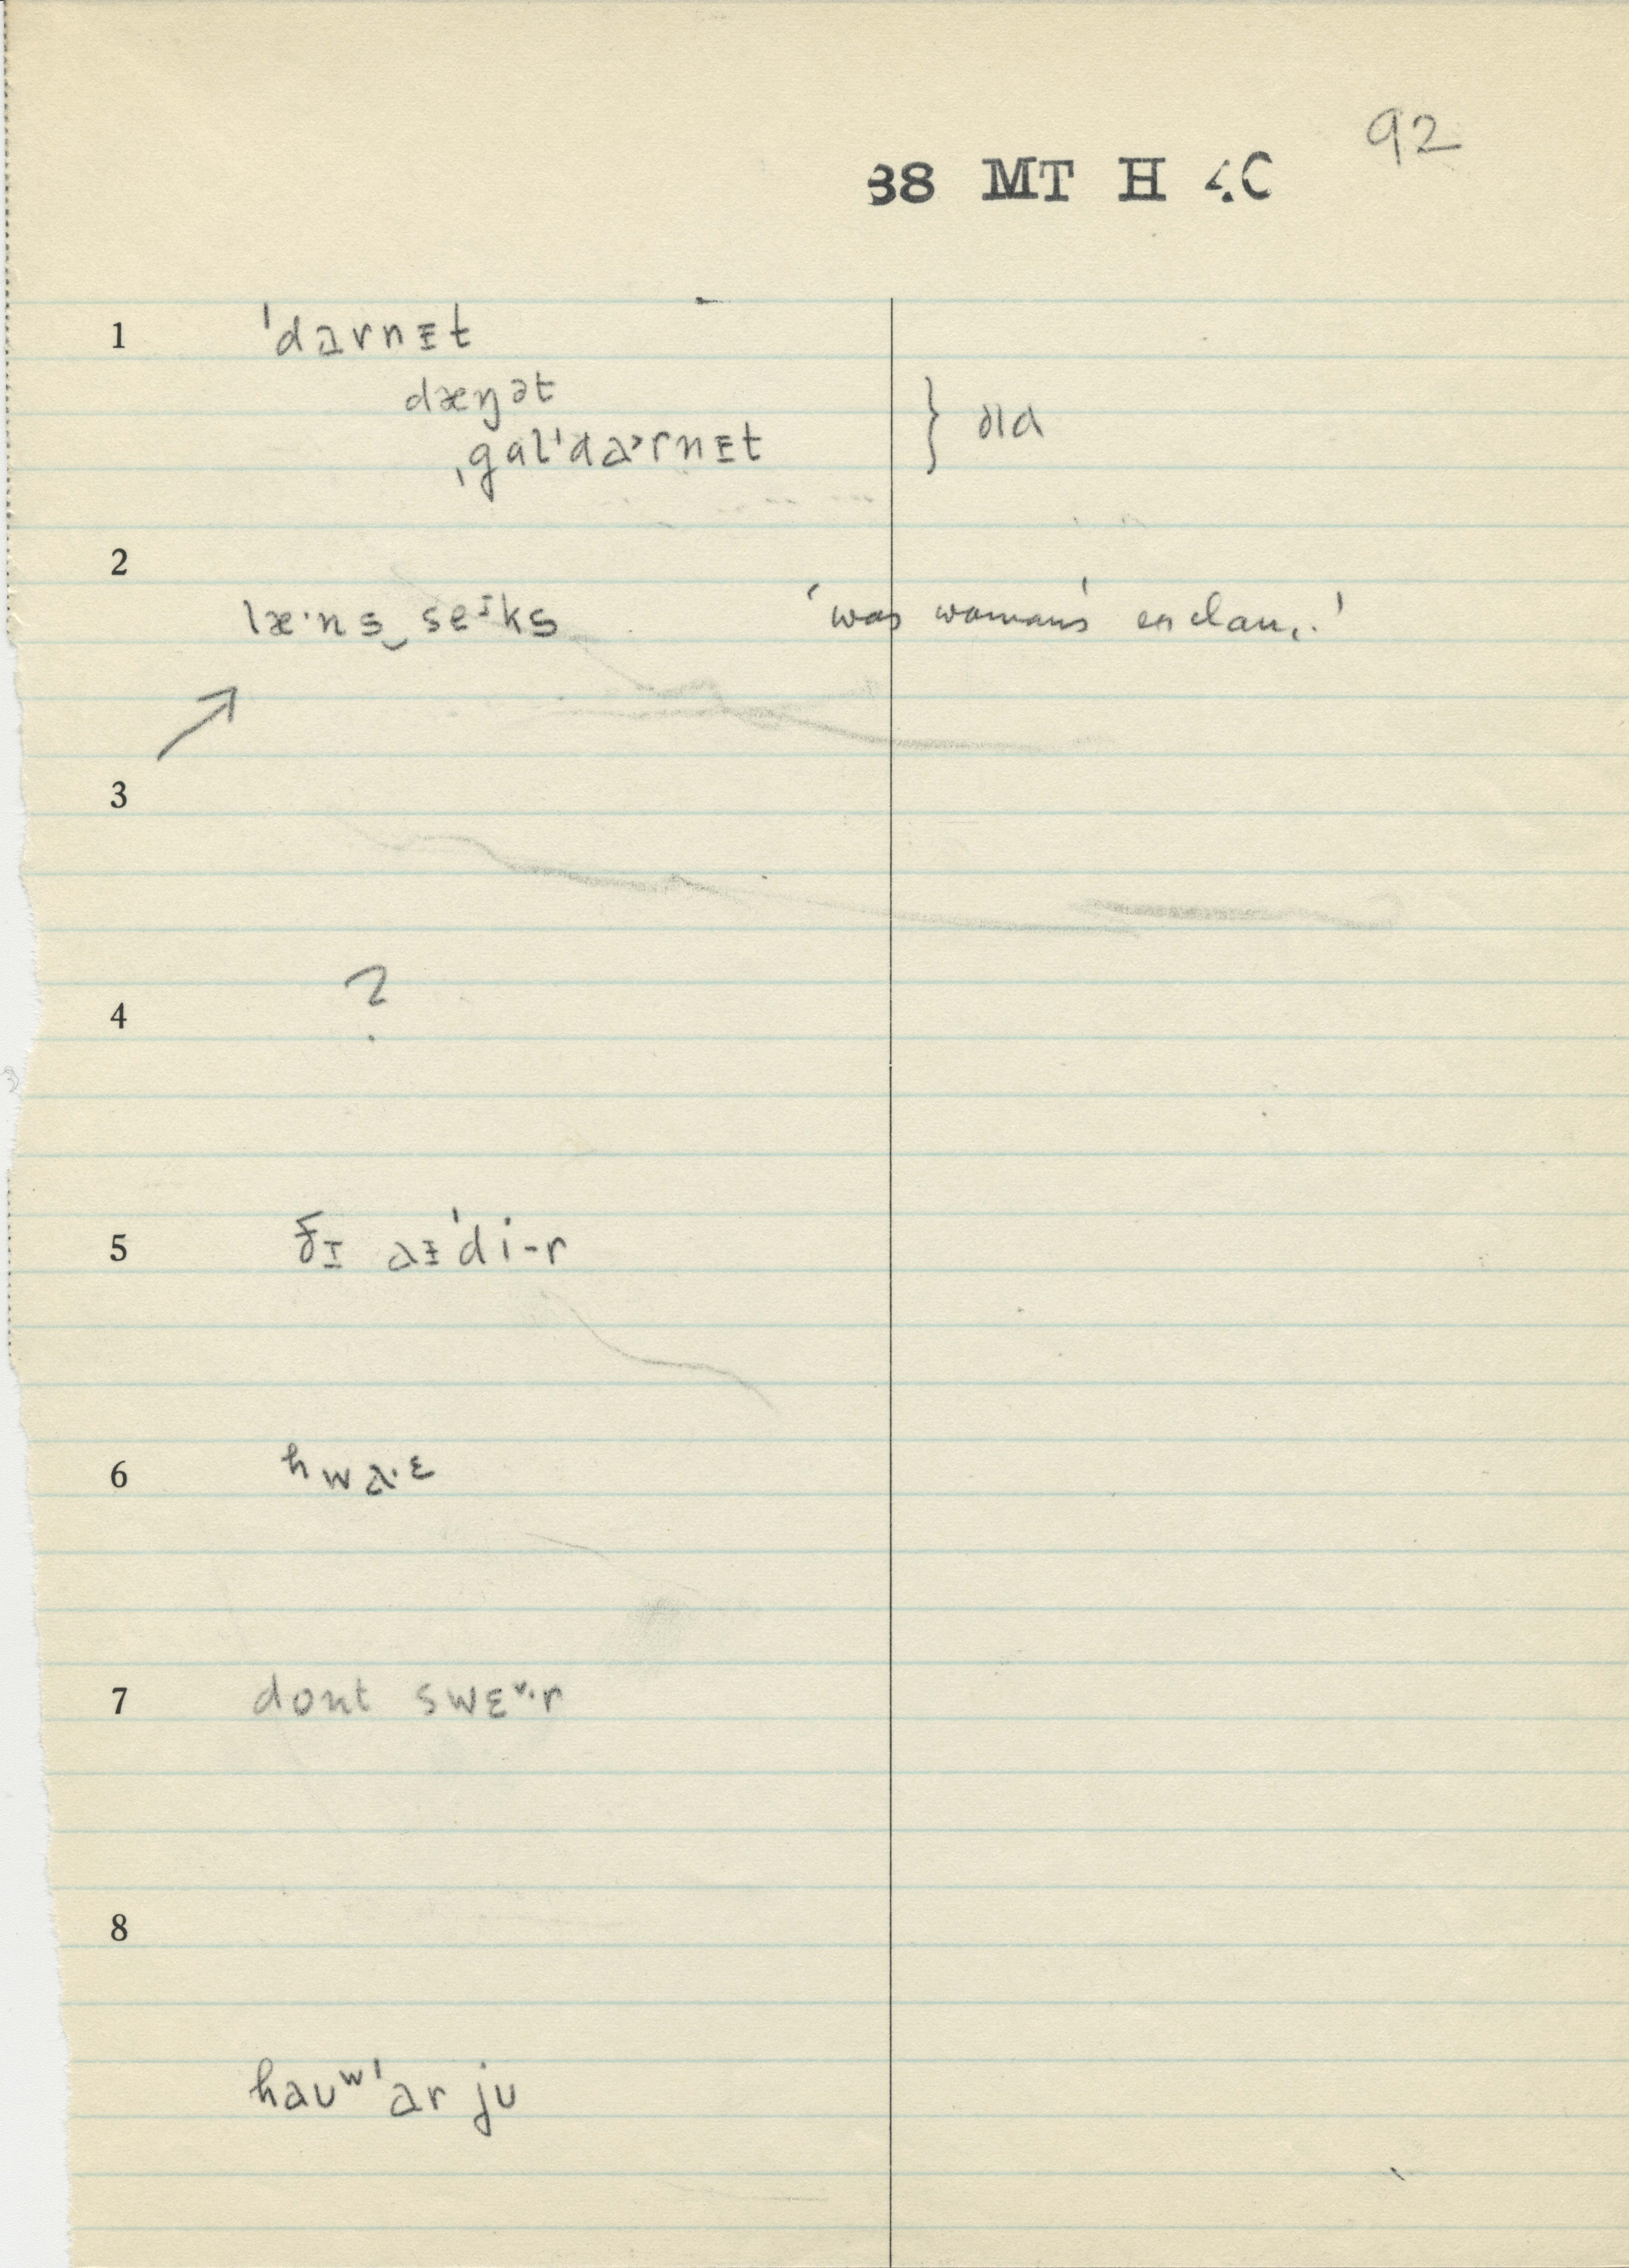 92
38 MT H 4C
1 ˈdarnɪt
dæŋət
ˌgɑlˈdaʳrnɪt } old
2
læ·ns‿seᴵks 'was woman's exclam.'
3
4 ?
5 ðɪ aɪˈdi-r
6 hwa·ɛ
7 dont swɛ˅·r
8
hauʷˈar ju